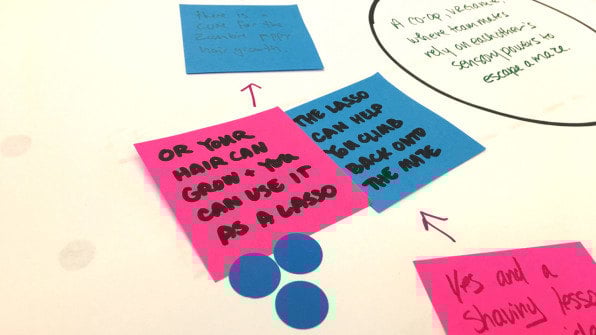 There is a
cure for the
hair growth.
A co-op, versame,
where team mates
rely on each other's
sensory powers to
escape a maze.
OR YOUR
HAIR CAN
GROW + YOU
CAN USE IT
AS A LASSO
THE LASSO
CAN HELP
YOU CLIMB
BACK ONTO
THE MATE
Yes and a
shaving